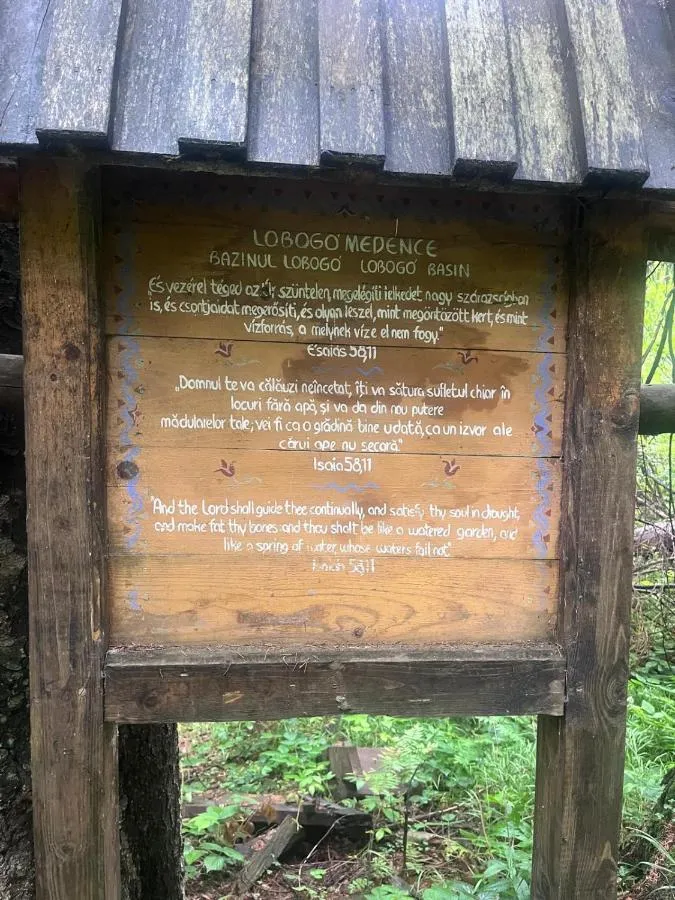 LOBOGÓ MEDENCE
BAZINUL LOBOGÓ LOBOGÓ BASIN
És vezérel téged az Úr szüntelen, megelégíti lelkedet nagy szárazságban
is, és csontjaidat megerősíti, és olyan leszel, mint megöntözött kert, és mint
vízforrás, a melynek vize el nem fogy."
Ésaiás 58,11
„Domnul te va călăuzi neîncetat, îți va sătura sufletul chiar în
locuri fără apă, și va da din nou putere
mădularelor tale; vei fi ca o grădină bine udată, ca un izvor ale
cărui ape nu seacă."
Isaia 58,11
"And the Lord shall guide thee continually, and satisfy thy soul in drought,
and make fat thy bones: and thou shalt be like a watered garden, and
like a spring of water, whose waters fail not."
Isaiah 58,11